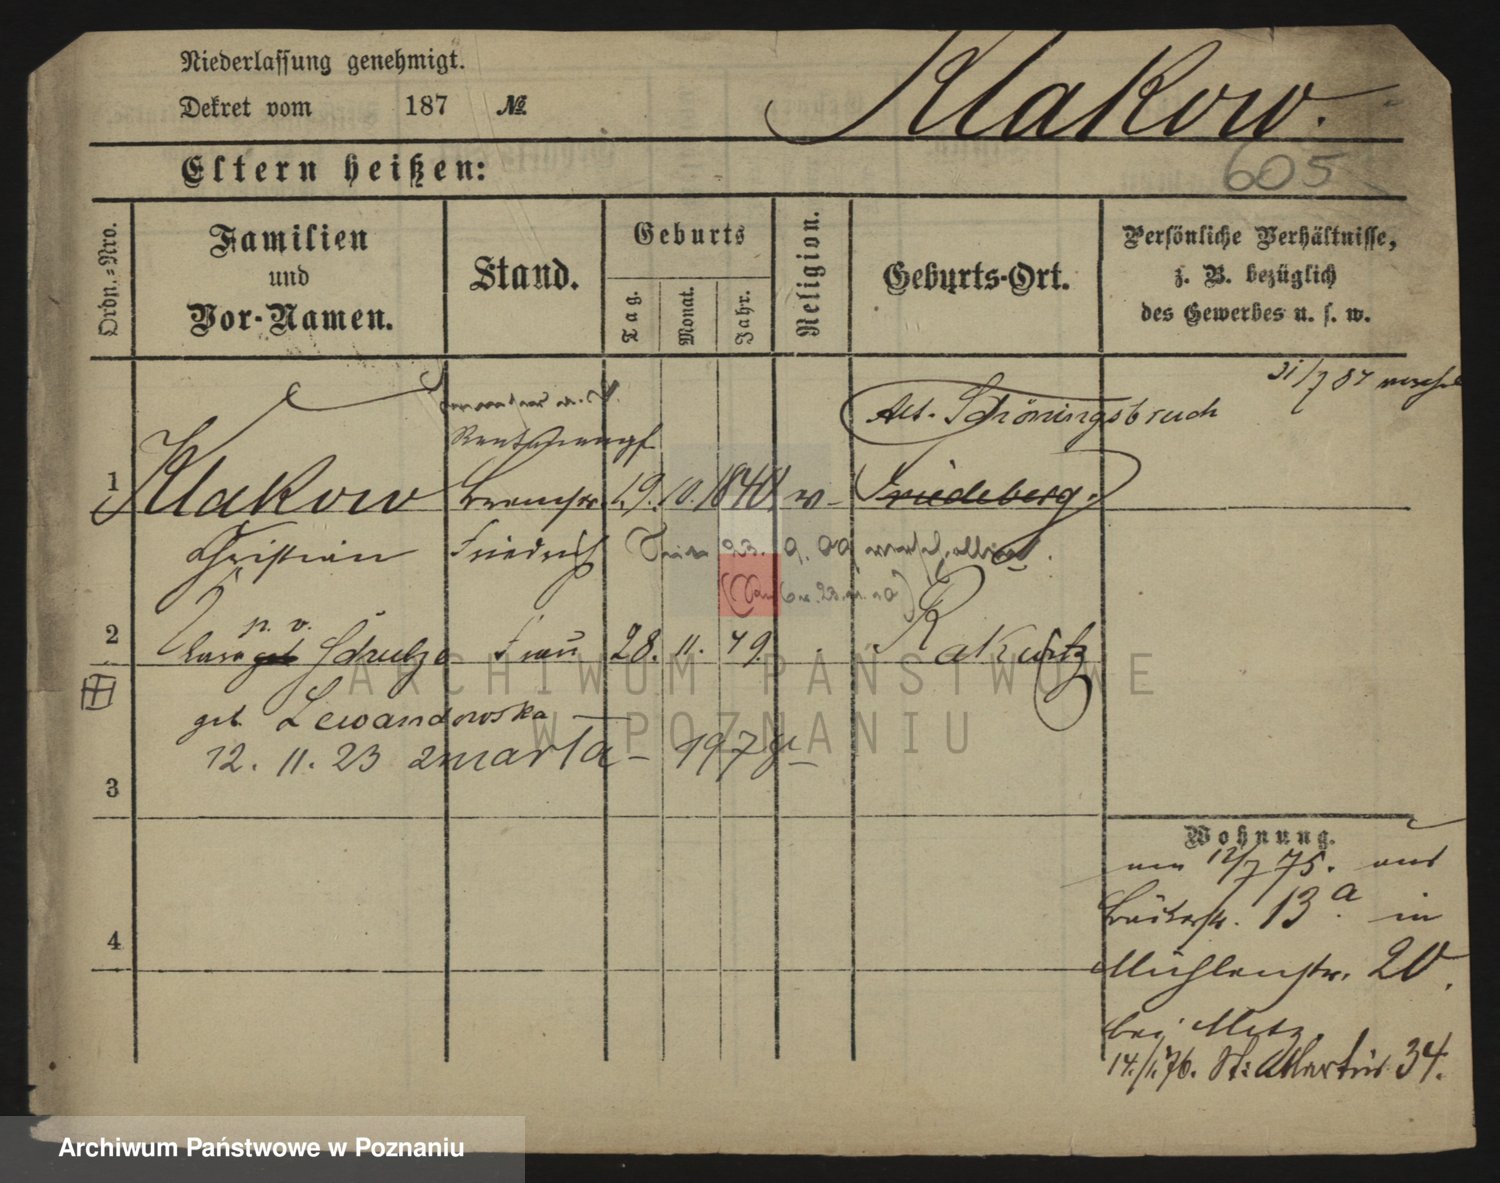 Niederlassung genehmigt.
Dekret vom 187 №
Klakow.
605
Eltern heißen:
Ordn.-Nro.
Familien und Vor-Namen.
Stand.
Geburts
Tag.
Monat.
Jahr.
Religion.
Geburts-Ort.
Persönliche Verhältnisse,
z. B. bezüglich
des Gewerbes u. s. w.
31/7 87
Alt-Schöningsbruch
1 Klakow 19. 10. 1840 Friedeberg.
Christian Friedrich
p. v.
2 geb Schulze Frau 28. 11. 49. Rakwitz
geb Lewandowska
12. 11. 23 zmarła
3
Wohnung.
am 12/7 75. aus
13.a in
4
Mühlenstr. 20.
bei Metz
14./1. 76. St: Martin 34.
ARCHIWUM PAŃSTWOWE
W POZNANIU
Archiwum Państwowe w Poznaniu